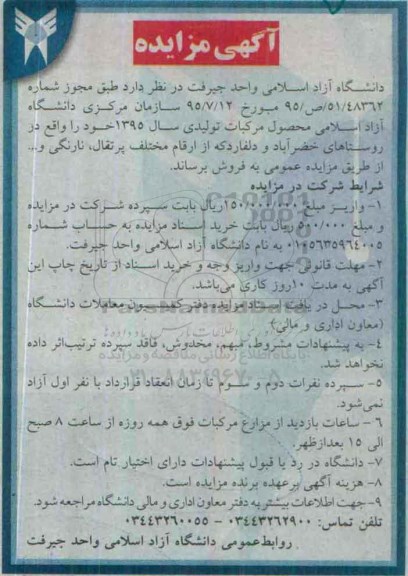 آگهی مزایده
دانشگاه آزاد اسلامی واحد جیرفت در نظر دارد طبق مجوز شماره
۵۱/۴۸۳۶۲/ص/۹۵ مورخ ۹۵/۷/۱۲ سازمان مرکزی دانشگاه
آزاد اسلامی محصول مرکبات تولیدی سال ۱۳۹۵خود را واقع در
روستاهای خضرآباد و دلفاردکه از ارقام مختلف پرتقال، نارنگی و...
از طریق مزایده عمومی به فروش برساند.
شرایط شرکت در مزایده
۱- واریز مبلغ ۱۵۰/۰۰۰/۰۰۰ریال بابت سپرده شرکت در مزایده
و مبلغ ۵۰۰/۰۰۰ ریال بابت خرید اسناد مزایده به حساب شماره
۰۱۰۵۶۳۵۹۶۴۰۰۵ به نام دانشگاه آزاد اسلامی واحد جیرفت.
۲- مهلت قانونی جهت واریز وجه و خرید اسناد از تاریخ چاپ این
آگهی به مدت ۱۰روز کاری می‌باشد.
۳- محل دریافت اسناد مزایده دفتر کمیسیون معاملات دانشگاه
(معاون اداری و مالی)
۴- به پیشنهادات مشروط، مبهم، مخدوش، فاقد سپرده ترتیب‌اثر داده
نخواهد شد.
۵- سپرده نفرات دوم و سوم تا زمان انعقاد قرارداد با نفر اول آزاد
نمی‌شود.
۶ - ساعات بازدید از مزارع مرکبات فوق همه روزه از ساعت ۸ صبح
الی ۱۵ بعدازظهر.
۷- دانشگاه در رد یا قبول پیشنهادات دارای اختیار تام است.
۸- هزینه آگهی برعهده برنده مزایده است.
۹-جهت اطلاعات بیشتر به دفتر معاون اداری و مالی دانشگاه مراجعه شود.
تلفن تماس: ۰۳۴۴۳۲۶۲۹۰۰ - ۰۳۴۴۳۲۶۰۰۵۵
روابط‌عمومی دانشگاه آزاد اسلامی واحد جیرفت